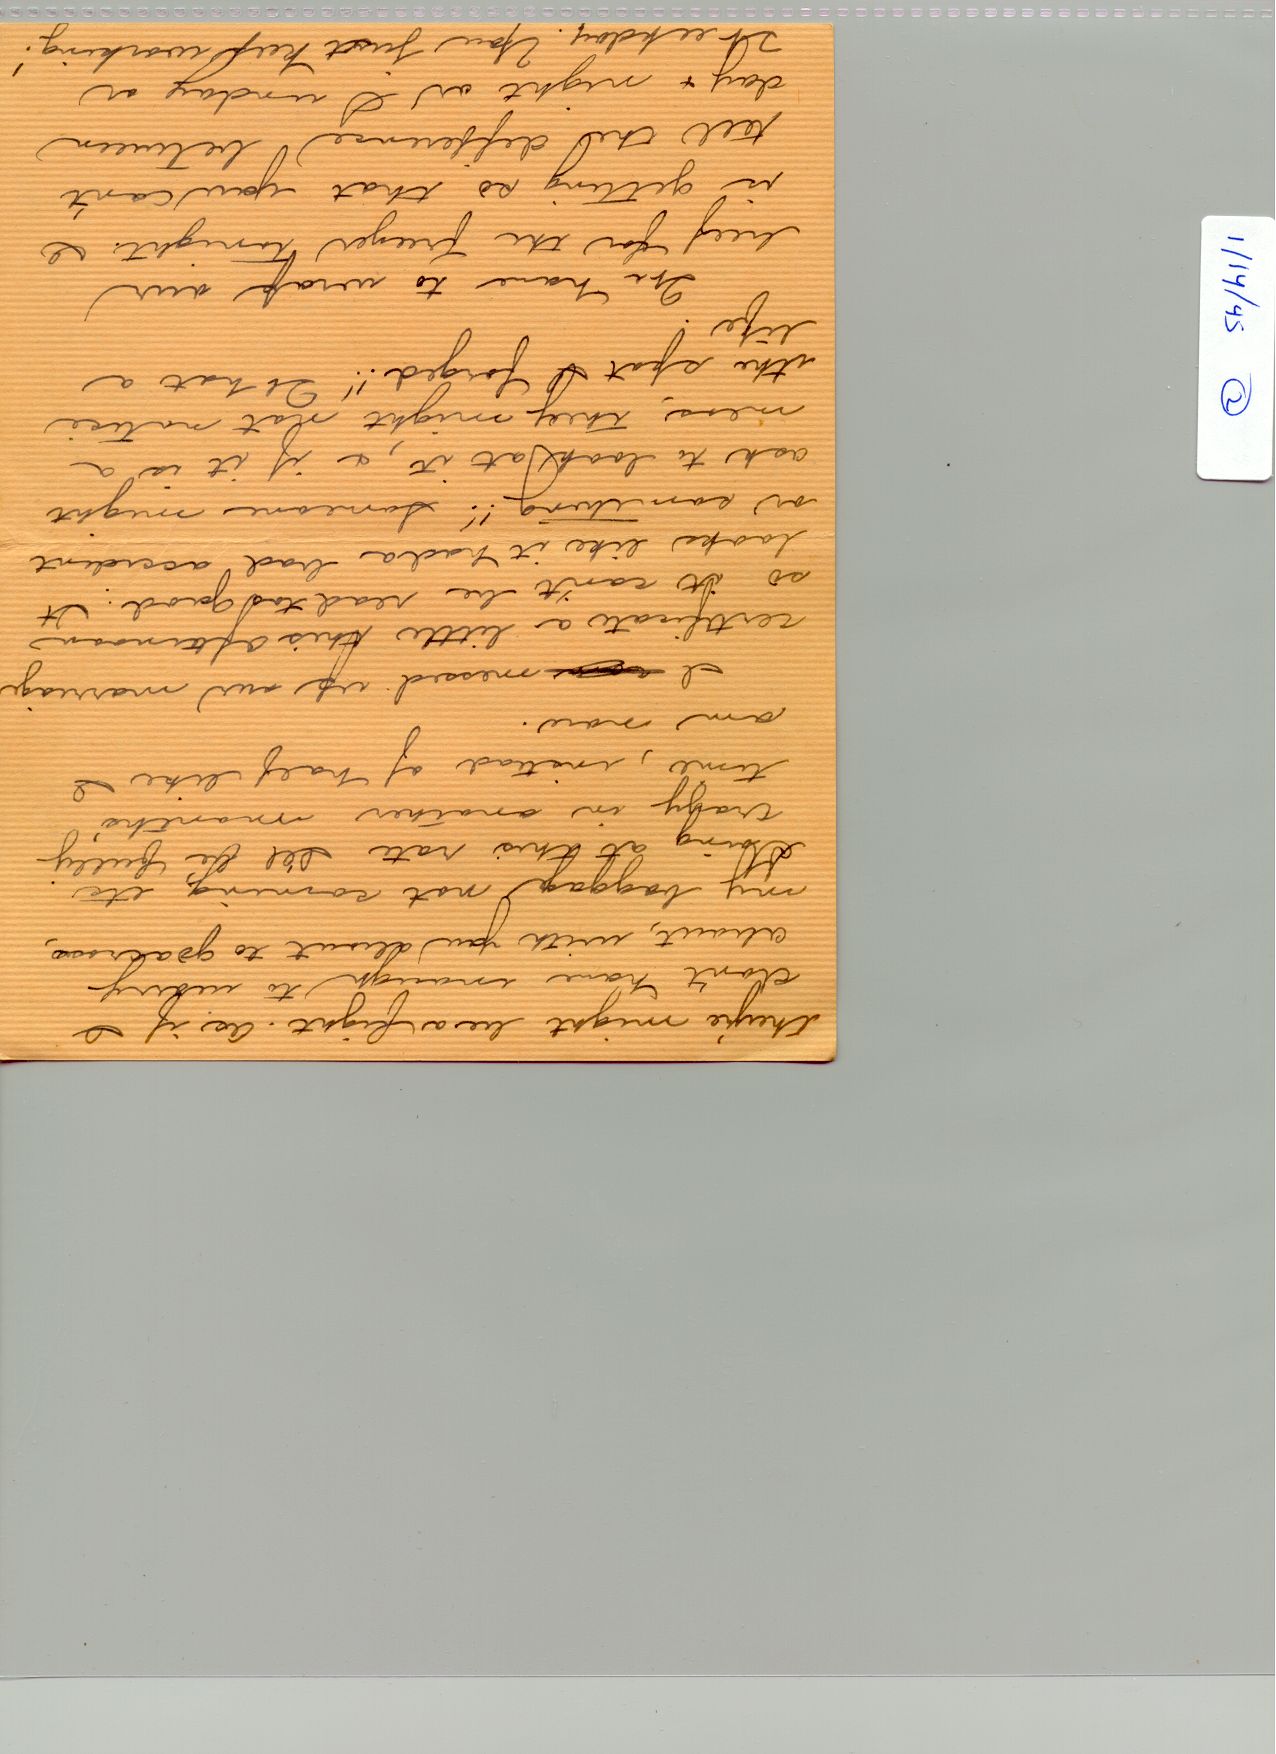 they're might be a fight. As if I
don't have enough to worry
about, with you about to go across,
my baggage not coming, etc
Going at this rate I'll be fully
crazy in another month's
time, instead of half like I
am now.
I messed up our marriage
certificate a little this afternoon
so it can't be read too good. It
looks like it had a bad accident
or something!! Someone might
ask to look at it, & if it is a
mess, they might not notice
the spot I forged!! What a
life.
We have to wrap our
beef for the freezer tonight. I
is getting so that you can't
tell the difference between
day & night or Sunday or
Weekday. You just keep working!
1/14/45 2